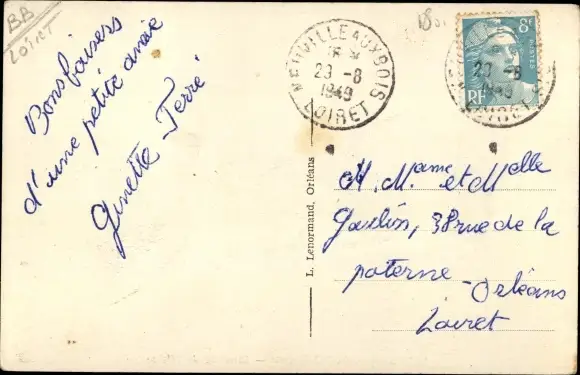 BB
LOIRET
Bons baisers
d'une petite amie
Ginette Terré
NEUVILLE AUX BOIS
23 -8
1949
LOIRET
8F
RF
23 -8
1949
L. Lenormand, Orléans
M. Mame et Melle
38 rue de la
paterne - Orléans
Loiret